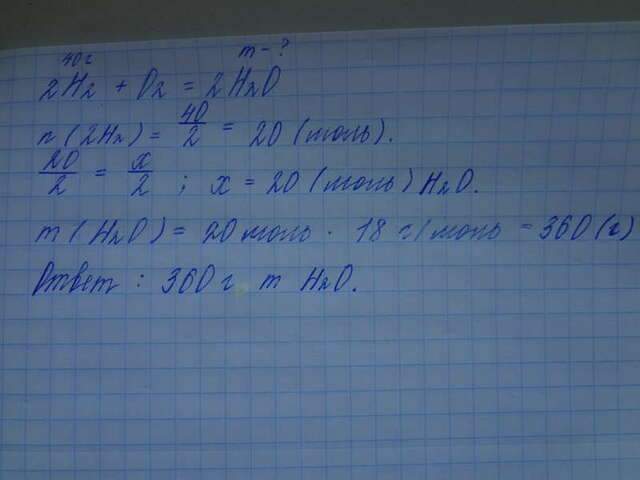 40г m - ?
2H₂ + O₂ = 2H₂O
n(2H₂) = 40/2 = 20 (моль).
20/2 = x/2 ; x = 20 (моль) H₂O.
m(H₂O) = 20 моль · 18 г/моль = 360 (г)
Ответ : 360 г m H₂O.